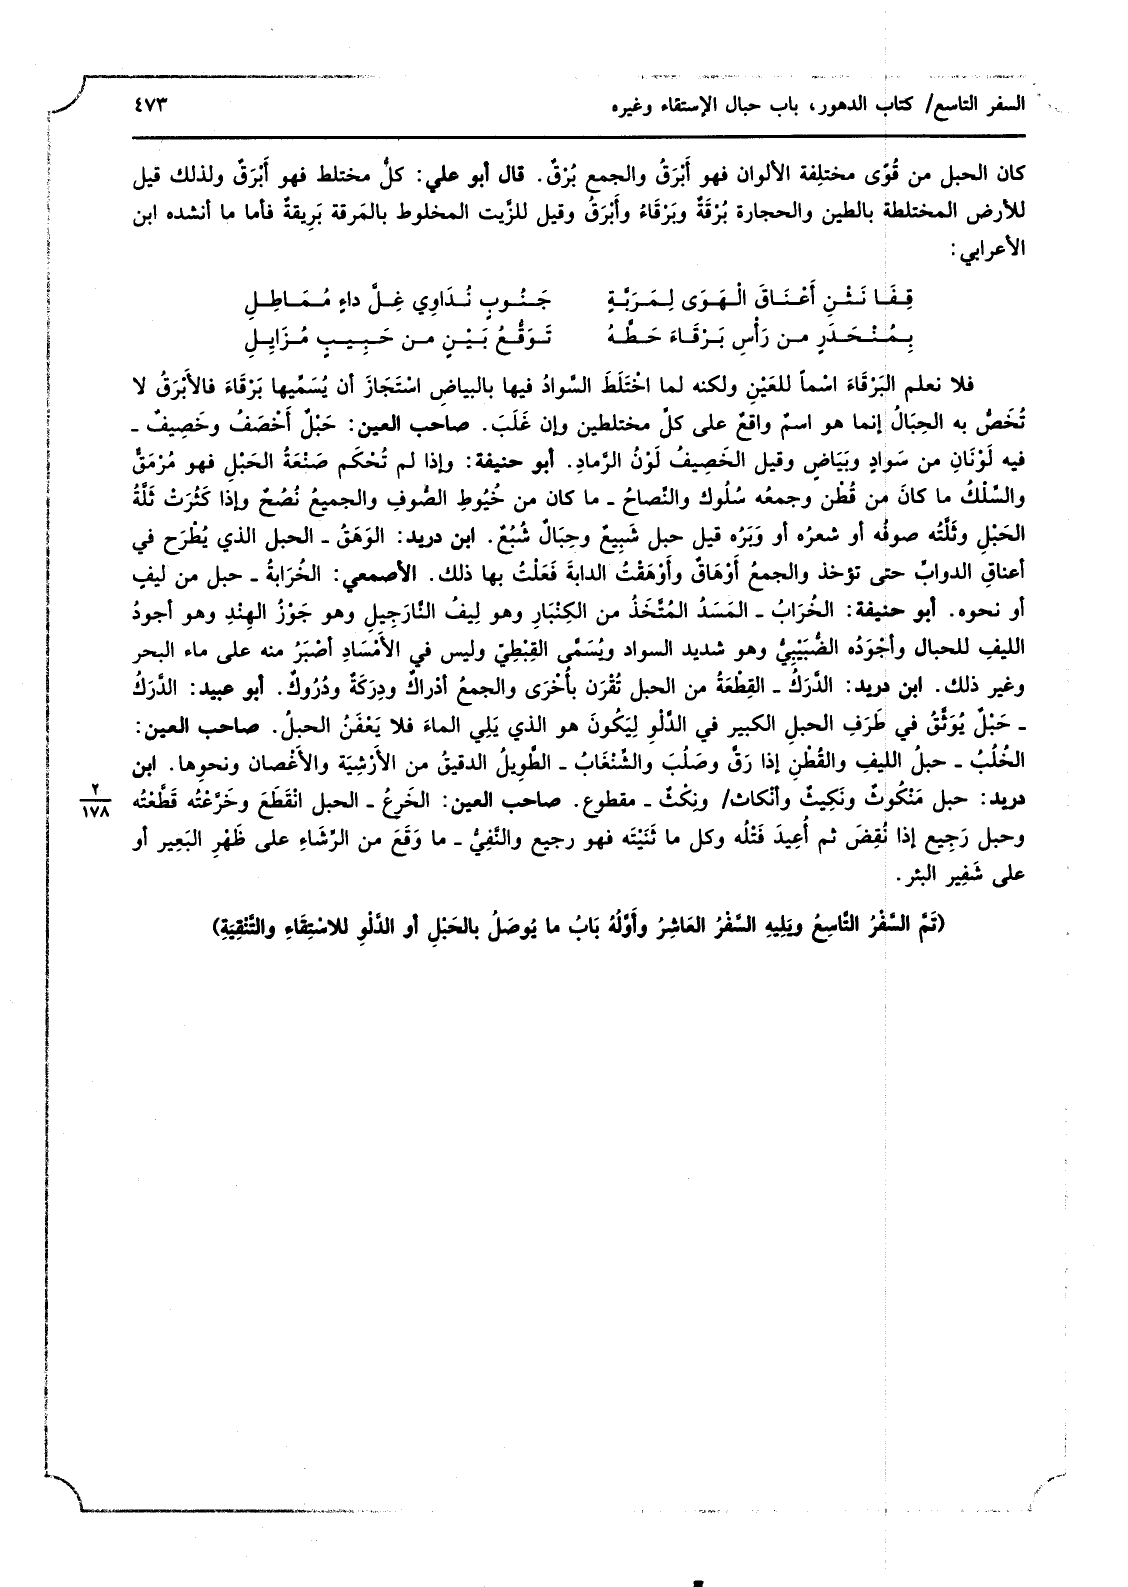 السفر التاسع/ كتاب الدهور، باب حبال الإستقاء وغيره ٤٧٣
كان الحبل من قُوًى مختلِفة الألوان فهو أَبْرَقُ والجمع بُرْقٌ. قال أبو علي: كلُّ مختلط فهو أَبْرَقٌ ولذلك قيل
للأرض المختلطة بالطين والحجارة بُرْقَةٌ وبَرْقَاءُ وأَبْرَقُ وقيل للزَّيت المخلوط بالمَرقة بَرِيقةٌ فأما ما أنشده ابن
الأعرابي:
قِفَا نَثْنِ أَعْنَاقَ الْهَوَى لِمَرَبَّةٍ جَنُوبٍ تُدَاوِي غِلَّ داءٍ مُمَاطِلِ
بِمُنْحَدَرٍ من رَأْسِ بَرْقَاءَ حَطَّهُ تَوَقُّعُ بَيْنٍ من حَبِيبٍ مُزَايِلِ
فلا نعلم البَرْقَاءَ اسْماً للعَيْنِ ولكنه لما اخْتَلَطَ السَّوادُ فيها بالبياضِ اسْتَجَازَ أن يُسَمِّيها بَرْقَاءَ فالأَبْرَقُ لا
تُخَصُّ به الحِبَالُ إنما هو اسمٌ واقعٌ على كلِّ مختلطين وإن غَلَبَ. صاحب العين: حَبْلٌ أَخْصَفُ وخَصِيفٌ ـ
فيه لَوْنَانِ من سَوادٍ وبَيَاضٍ وقيل الخَصِيفُ لَوْنُ الرَّمادِ. أبو حنيفة: وإذا لم تُحْكَم صَنْعَةُ الحَبْلِ فهو مُرْمَقٌّ
والسِّلْكُ ما كانَ مِن قُطْن وجمعُه سُلُوك والنِّصاحُ ـ ما كان من خُيُوطِ الصُّوفِ والجميعُ نُصُحٌ وإذا كَثُرَتْ ثَلَّةُ
الحَبْلِ وثَلَّتُه صوفُه أو شعرُه أو وَبَرُه قيل حبل شَبِيعٌ وحِبَالٌ شُبُعٌ. ابن دريد: الوَهَقُ ـ الحبل الذي يُطْرَح في
أعناقِ الدوابِّ حتى تؤخذ والجمعُ أَوْهَاقٌ وأَوْهَقْتُ الدابةَ فَعَلْتُ بها ذلك. الأصمعي: الخُرَابةُ ـ حبل من ليفٍ
أو نحوه. أبو حنيفة: الخُرَابُ ـ المَسَدُ المُتَّخَذُ من الكِنْبَارِ وهو لِيفُ النَّارَجِيلِ وهو جَوْزُ الهِنْدِ وهو أجودُ
الليفِ للحبال وأَجْوَدُه الصُّبَيْبِيُّ وهو شديد السواد ويُسَمَّى القِبْطِيّ وليس في الأَمْسَادِ أصْبَرُ منه على ماء البحر
وغير ذلك. ابن دريد: الدَّرَكُ ـ القِطْعَةُ من الحبل تُقْرَن بأُخْرَى والجمعُ أدْراكٌ ودِرَكَةٌ ودُرُوكٌ. أبو عبيد: الدَّرَكُ
ـ حَبْلٌ يُوَثَّقُ في طَرَفِ الحبلِ الكبير في الدَّلْوِ لِيَكُونَ هو الذي يَلِي الماءَ فلا يَعْفَنُ الحبلُ. صاحب العين:
الخُلُبُ ـ حبلُ الليفِ والقُطْنِ إذا رَقَّ وصَلُبَ والشِّنْغَابُ ـ الطَّوِيلُ الدقيقُ من الأَرْشِيَة والأَغْصان ونحوِها. ابن
دريد: حبل مَنْكُوثٌ ونَكِيثٌ وأنْكاث/ ونِكْثٌ ـ مقطوع. صاحب العين: الخَرِعُ ـ الحبل انْقَطَعَ وخَرَّعْتُه قَطَّعْتُه
٢
١٧٨
وحبل رَجِيع إذا نُقِضَ ثم أُعِيدَ فَتْلُه وكل ما ثَنَيْتَه فهو رجيع والنَّفِيُّ ـ ما وَقَعَ من الرِّشَاءِ على ظَهْرِ البَعِير أو
على شَفِير البئر.
(تَمَّ السِّفْرُ التَّاسِعُ ويَلِيهِ السِّفْرُ العَاشِرُ وأَوَّلُهُ بَابُ ما يُوصَلُ بالحَبْلِ أو الدَّلْوِ للاسْتِقَاءِ والتَّنْقِيَةِ)